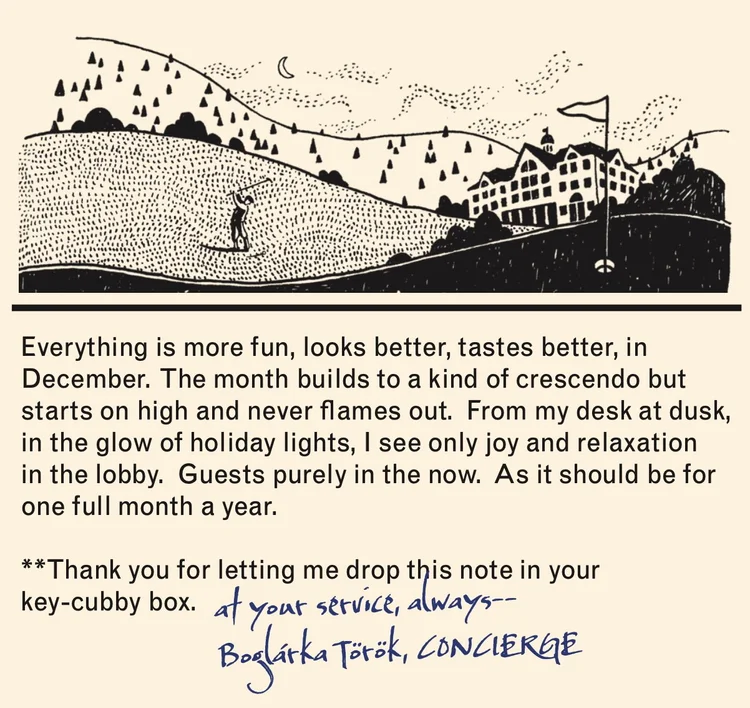 Everything is more fun, looks better, tastes better, in
December. The month builds to a kind of crescendo but
starts on high and never flames out. From my desk at dusk,
in the glow of holiday lights, I see only joy and relaxation
in the lobby. Guests purely in the now. As it should be for
one full month a year.
**Thank you for letting me drop this note in your
key-cubby box. at your service, always--
Boglárka Török, CONCIERGE